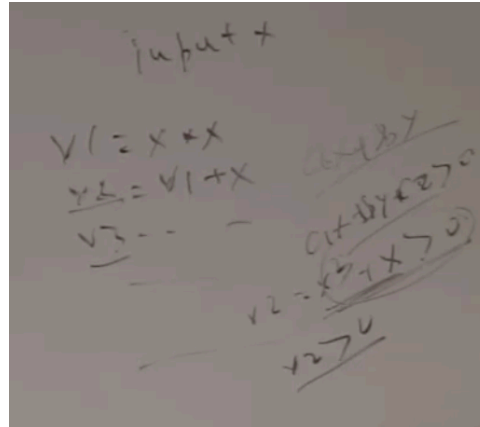 input x
v1 = x * x
v2 = v1 + x
v3 - - -
ax + by
v2 = x² + x > 0
v2 > 0